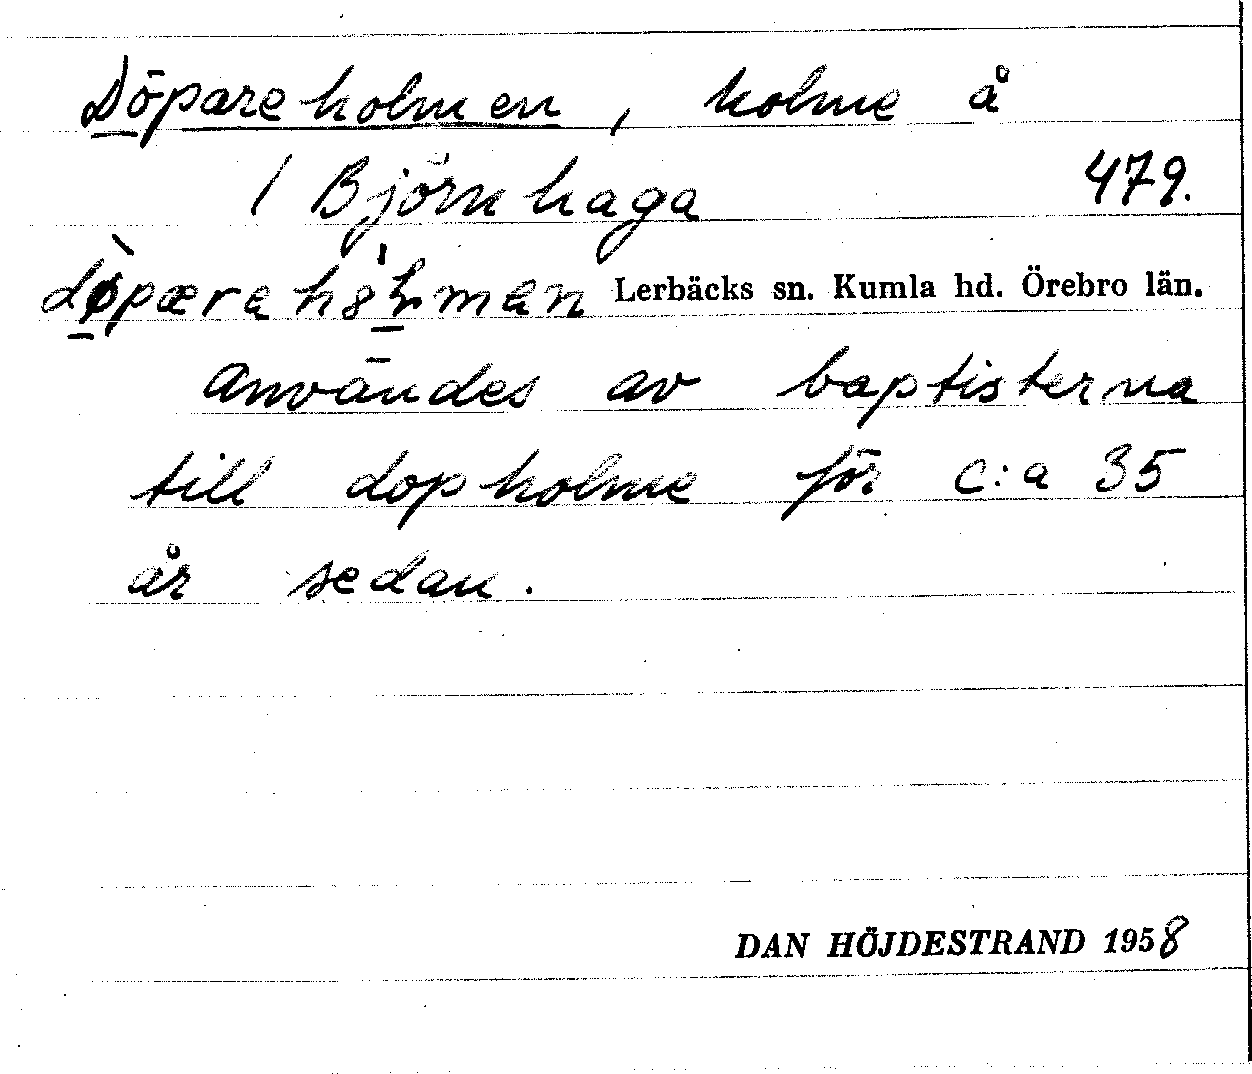 Döpareholmen, holme å
1 Björnhaga 479.
Lerbäcks sn. Kumla hd. Örebro län.
användes av baptisterna
till dopholme för c:a 35
år sedan.
DAN HÖJDESTRAND 1958